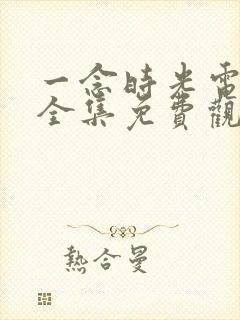 一念時光電
全集免費觀
熱合曼